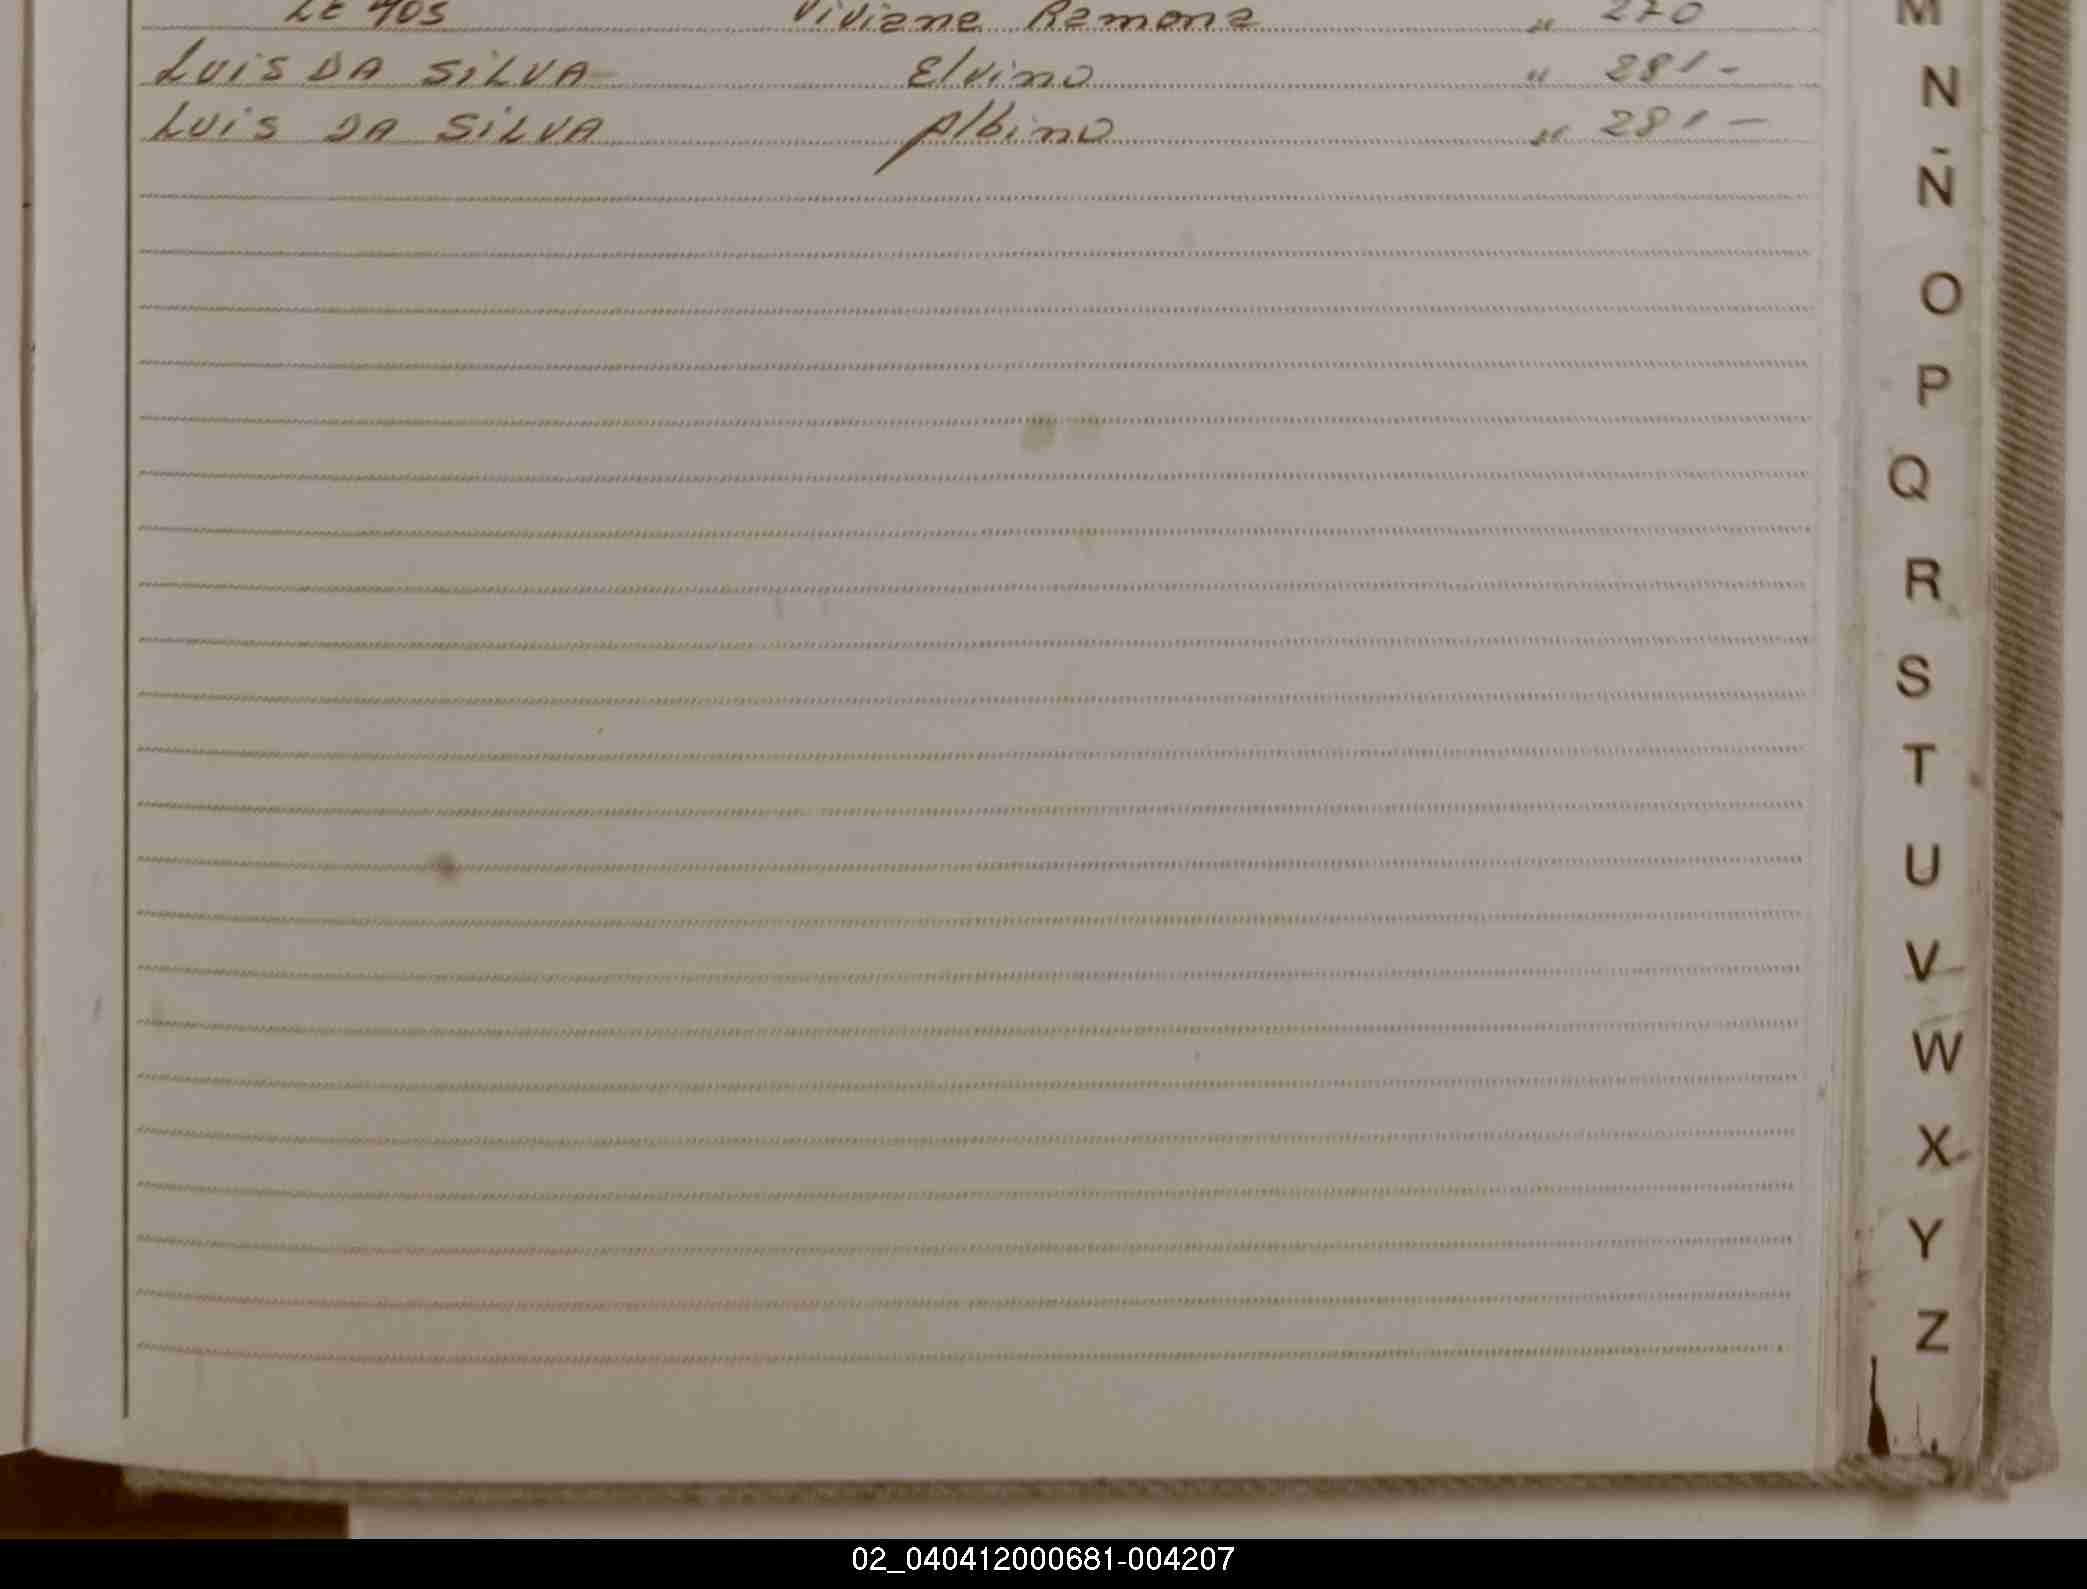 Viviane Ramona " 270
LUIS DA SILVA Elvino " 281-
LUIS DA SILVA Albino " 281-
M
N
Ñ
O
P
Q
R
S
T
U
V
W
X
Y
Z
02_040412000681-004207